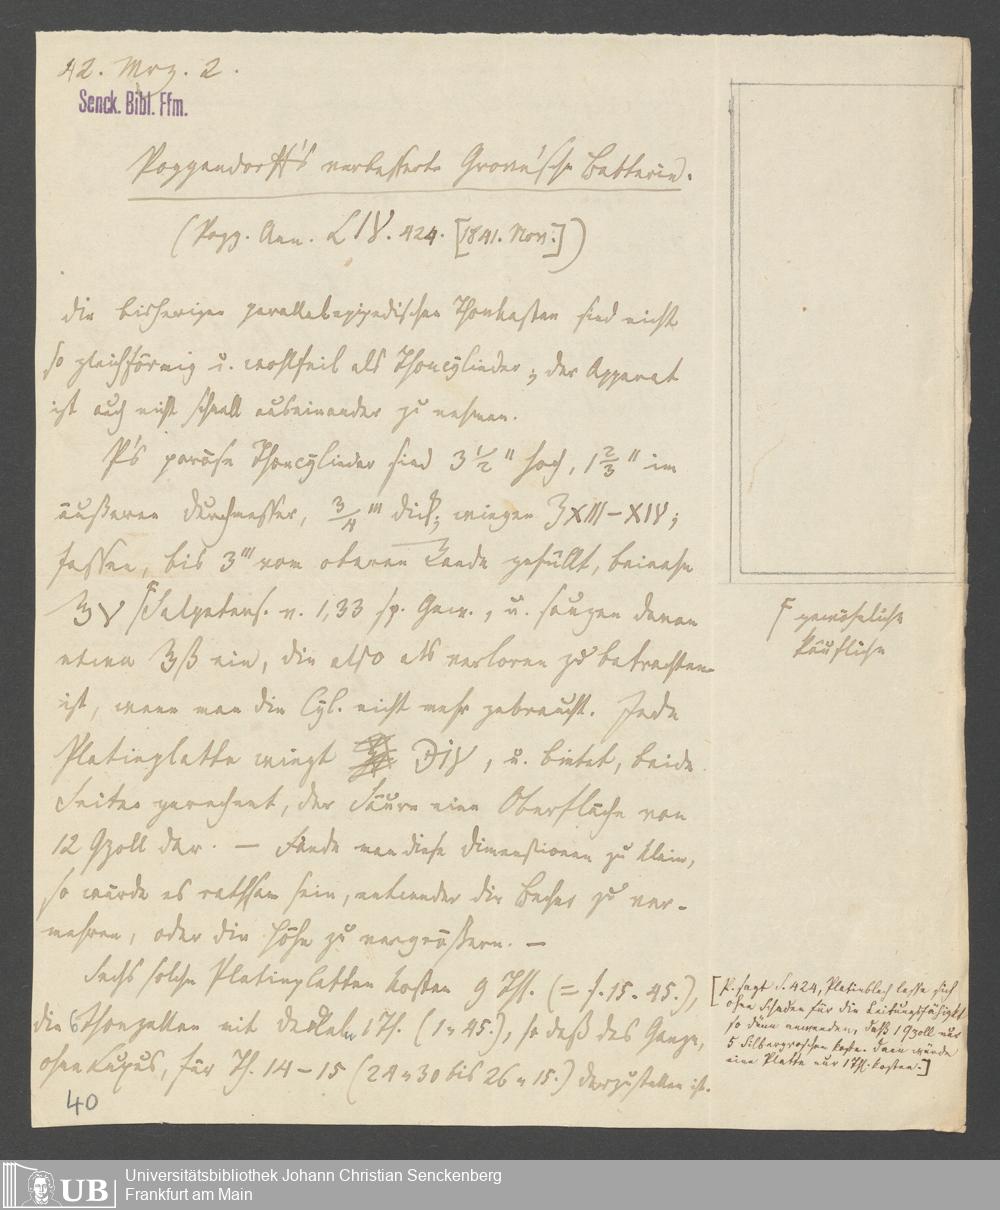 42. Mrz. 2.
Senck. Bibl. Ffm.
Poggendorff's verbesserte Grove'sche Batterie.
(Pogg. Ann. LIV. 424. [1841. Nov.])
Die bisherigen parallelepipedischen Thonkasten sind nicht
so gleichförmig u. wohlfeil als Thoncylinder; der Apparat
ist auch nicht schnell auseinander zu nehmen.
P's poröse Thoncylinder sind 3 1/2" hoch, 1 2/3" im
äußeren Durchmesser, 3/4''' dick; wiegen ℥XIII–XIV;
fassen, bis 3''' vom oberen Rande gefüllt, beinahe
℥V ⌈Salpeters. v. 1,33 sp. Gew., u. saugen davon
etwa ℥ß ein, die also als verloren zu betrachten
ist, wenn man die Cyl. nicht mehr gebraucht. Jede
Platinplatte wiegt ℈IV, u. bietet, beide
Seiten gerechnet, der Säure eine Oberfläche von
12 Qzoll dar. — Fände man diese Dimensionen zu klein,
so würde es rathsam sein, entweder die Becher zu ver-
mehren, oder die Höhe zu vergrößern. —
Sechs solche Platinplatten kosten 9 Th. (= f. 15. 45.),
die 6 Thonzellen mit Deckeln 1 Th. (1 " 45.), so daß das Ganze,
ohne Luxus, für Th. 14–15 (24 " 30 bis 26 " 15.) darzustellen ist.
40
⌈ gewöhnliche
käufliche
[P. sagt S. 424, Platinblech lasse sich
ohne Schaden für die Leitungsfähigkt
so dünn anwenden, daß 1 Qzoll nur
5 Silbergroschen koste. Dann würde
eine Platte nur 1 Th. kosten.]
UB
Universitätsbibliothek Johann Christian Senckenberg
Frankfurt am Main